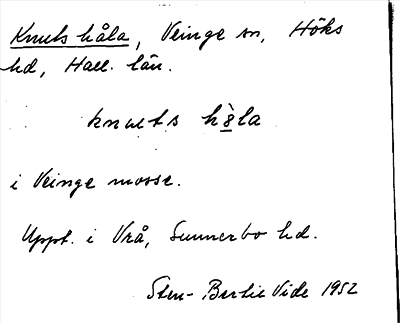 Knuts håla, Veinge sn, Höks
hd, Hall. län.
knuts hò̤la
i Veinge mosse.
Uppt. i Vrå, Sunnerbo hd.
Sten-Bertil Vide 1952